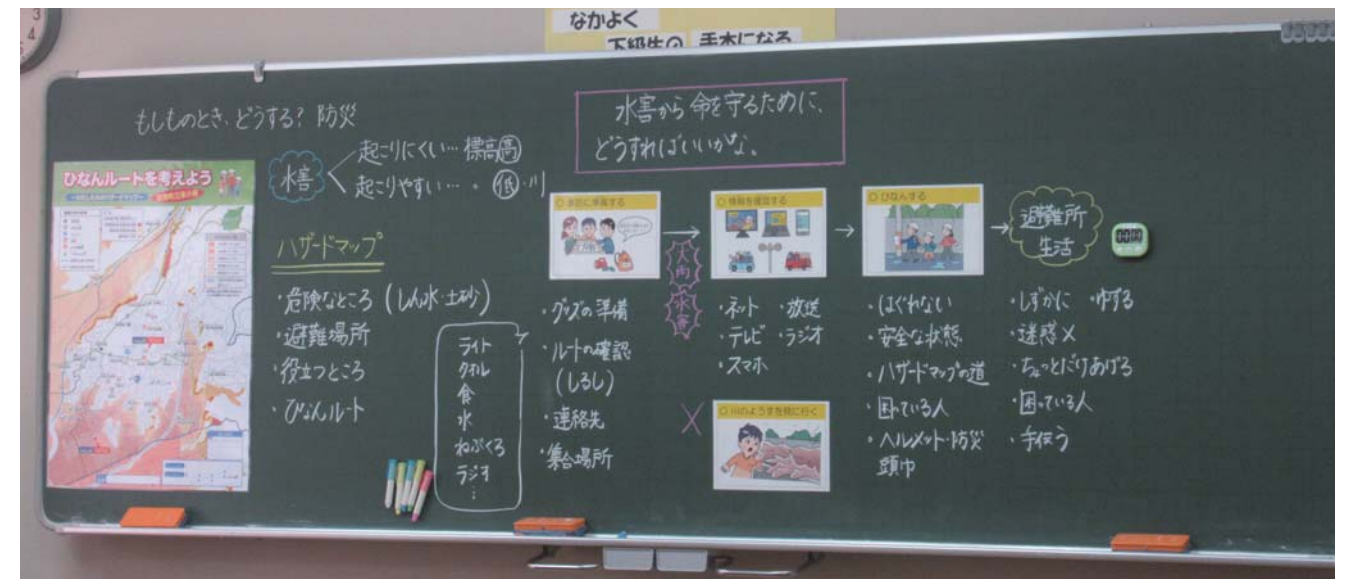 なかよく
下級生の 手本になる
もしものとき、どうする? 防災
水害から命を守るために、
どうすればいいかな。
ひなんルートを考えよう
水害
起こりにくい… 標高高
起こりやすい… 〃 低・川
ハザードマップ
・危険なところ(しん水・土砂)
・避難場所
・役立つところ
・ひなんルート
ライト
タオル
食
水
ねぶくろ
ラジオ
⋮
○ 事前に準備する
・グッズの準備
・ルートの確認
(しるし)
・連絡先
・集合場所
→
大雨
水害
○ 情報を確認する
・ネット ・放送
・テレビ ・ラジオ
・スマホ
×
○ 川のようすを見に行く
→
○ ひなんする
・はぐれない
・安全な状態
・ハザードマップの道
・困っている人
・ヘルメット・防災
頭巾
→
避難所
生活
・しずかに ・ゆずる
・迷惑×
・ちょっとだけあげる
・困っている人
・手伝う
3
4